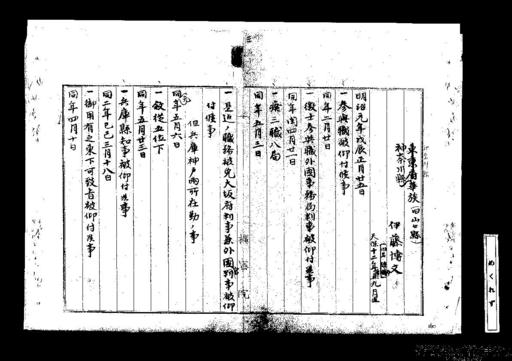 東京府華族（旧山口縣）
神奈川縣
伊藤博文
天保十二年九月生
明治元年戊辰正月廿五日
一参與職被仰付候事
同年二月廿日
一徴士参與職外國事務局判事被仰付候事
同年閏四月廿一日
一癈三職八局
同年五月三日
一是迠ノ職務被免大坂府判事兼外國判事被仰
付候事
但兵庫神戸両所在勤ノ事
同年五月六日
一叙従五位下
同年五月廿三日
一兵庫縣知事被仰付候事
同二年己巳三月十八日
一御用有之東下可致旨被仰付候事
同年四月十日
樞密院
めくれず